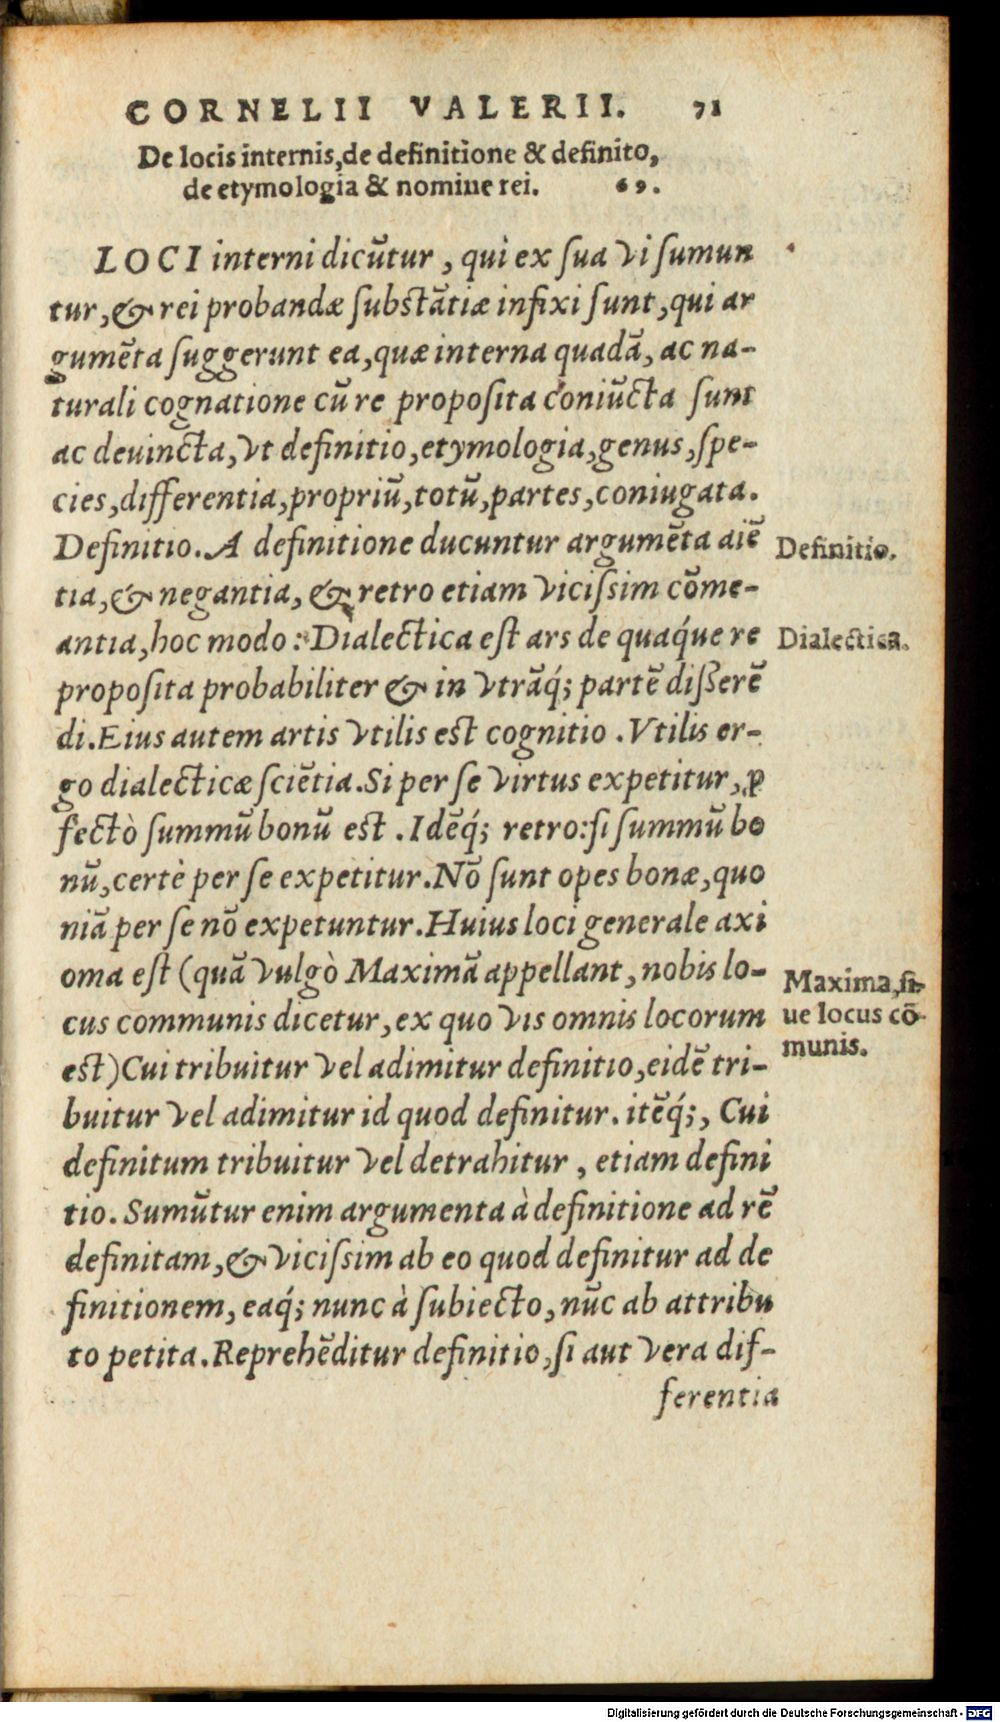 CORNELII VALERII. 71
De locis internis, de definitione & definito,
de etymologia & nomine rei. 69.
LOCI interni dicūtur, qui ex ſua vi ſumun
tur, & rei probandæ ſubſtātiæ infixi ſunt, qui ar
gumēta ſuggerunt ea, quæ interna quadā, ac na-
turali cognatione cū re propoſita coniūcta ſunt
ac deuincta, vt definitio, etymologia, genus, ſpe-
cies, differentia, propriū, totū, partes, coniugata.
Definitio. A definitione ducuntur argumēta aiē
Definitio.
tia, & negantia, & retro etiam viciſsim cōme-
antia, hoc modo: Dialectica eſt ars de quaq́ue re
Dialectica.
propoſita probabiliter & in vtrāq́; partē diſſerē
di. Eius autem artis vtilis eſt cognitio. Vtilis er-
go dialecticæ ſciētia. Si per ſe virtus expetitur, ꝓ
fectò ſummū bonū eſt. Idēq́; retro: ſi ſummū bo
nū, certè per ſe expetitur. Nō ſunt opes bonæ, quo
niā per ſe nō expetuntur. Huius loci generale axi
oma eſt (quā vulgò Maximā appellant, nobis lo-
Maxima, ſi-
cus communis dicetur, ex quo vis omnis locorum
ue locus cō-
eſt) Cui tribuitur vel adimitur definitio, eidē tri-
munis.
buitur vel adimitur id quod definitur. itēq́;, Cui
definitum tribuitur vel detrahitur, etiam defini
tio. Sumūtur enim argumenta à definitione ad rē
definitam, & viciſsim ab eo quod definitur ad de
finitionem, eaq́; nunc à ſubiecto, nūc ab attribu
to petita. Reprehēditur definitio, ſi aut vera dif-
ferentia
Digitalisierung gefördert durch die Deutsche Forschungsgemeinschaft - DFG